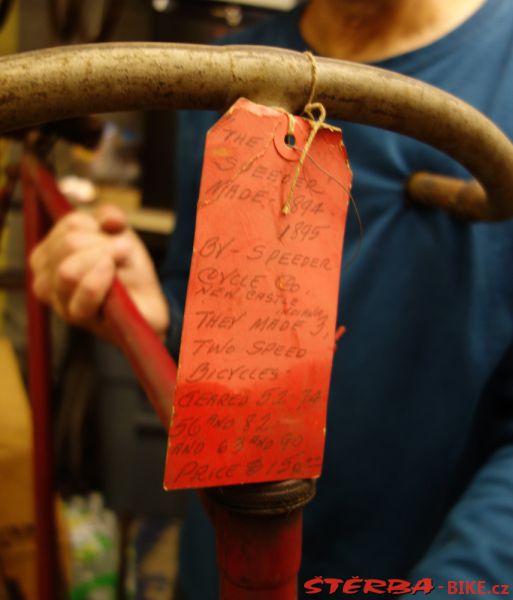 THE
"SPEEDER"
MADE - 1894
1895
BY - SPEEDER
CYCLE CO.
NEW CASTLE
INDIANA
THEY MADE 3
TWO SPEED
BICYCLES -
GEARED 52-74
56 AND 82 -
AND 63 AND 90
PRICE $150.00
ŠTĚRBA-BIKE.cz